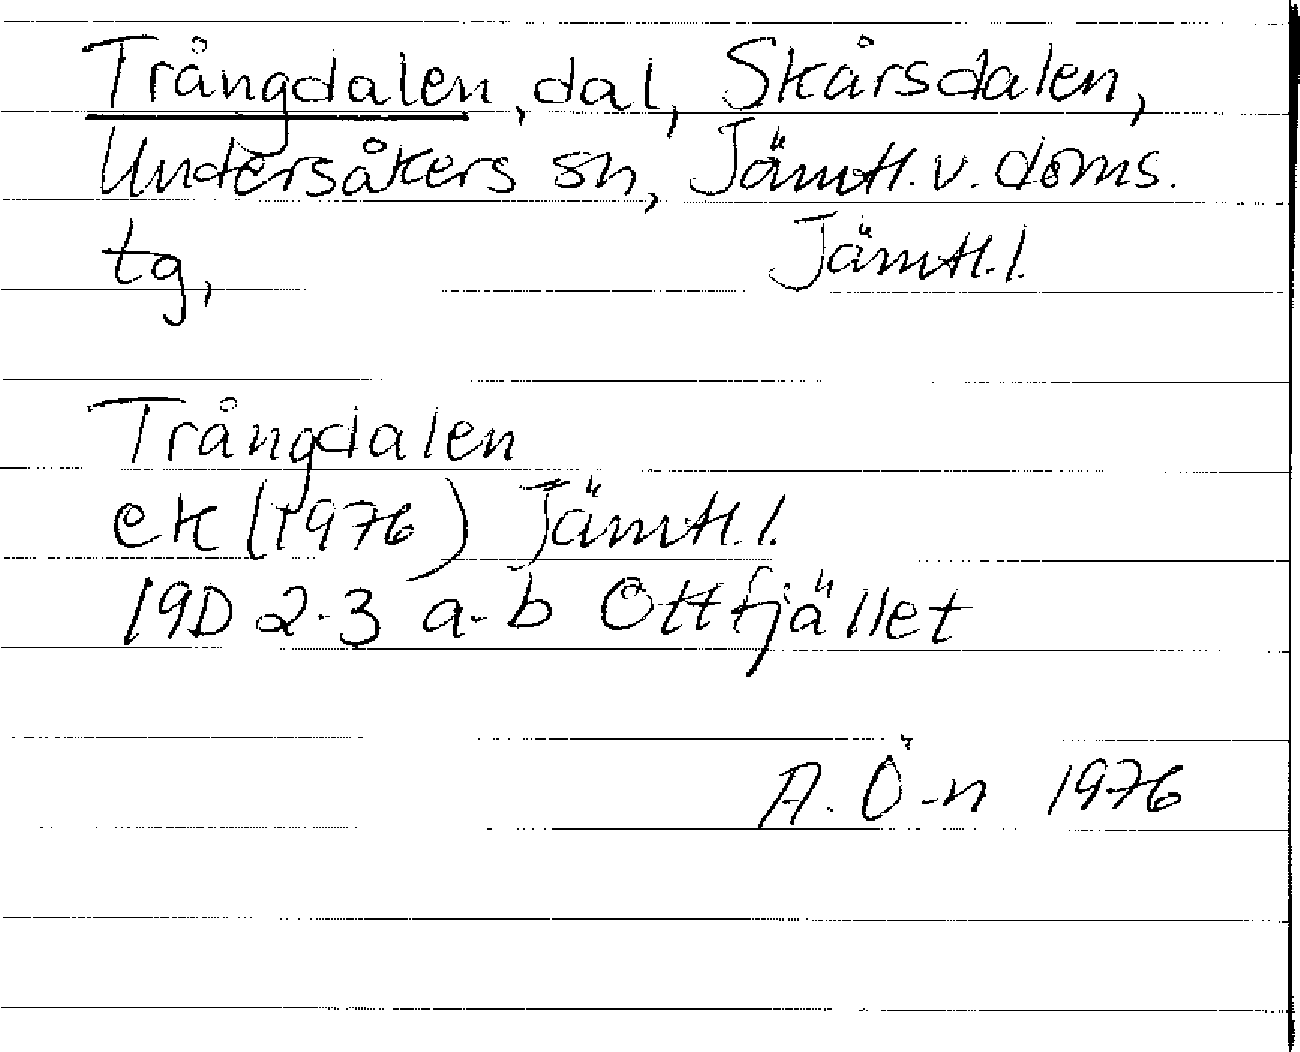 Trångdalen, dal, Skårsdalen,
Undersåkers sn, Jämtl. v. doms.
tg, Jämtl. l.
Trångdalen
ek (1976) Jämtl. l.
19D 2-3 a-b Ottfjället
A. Ö-n 1976